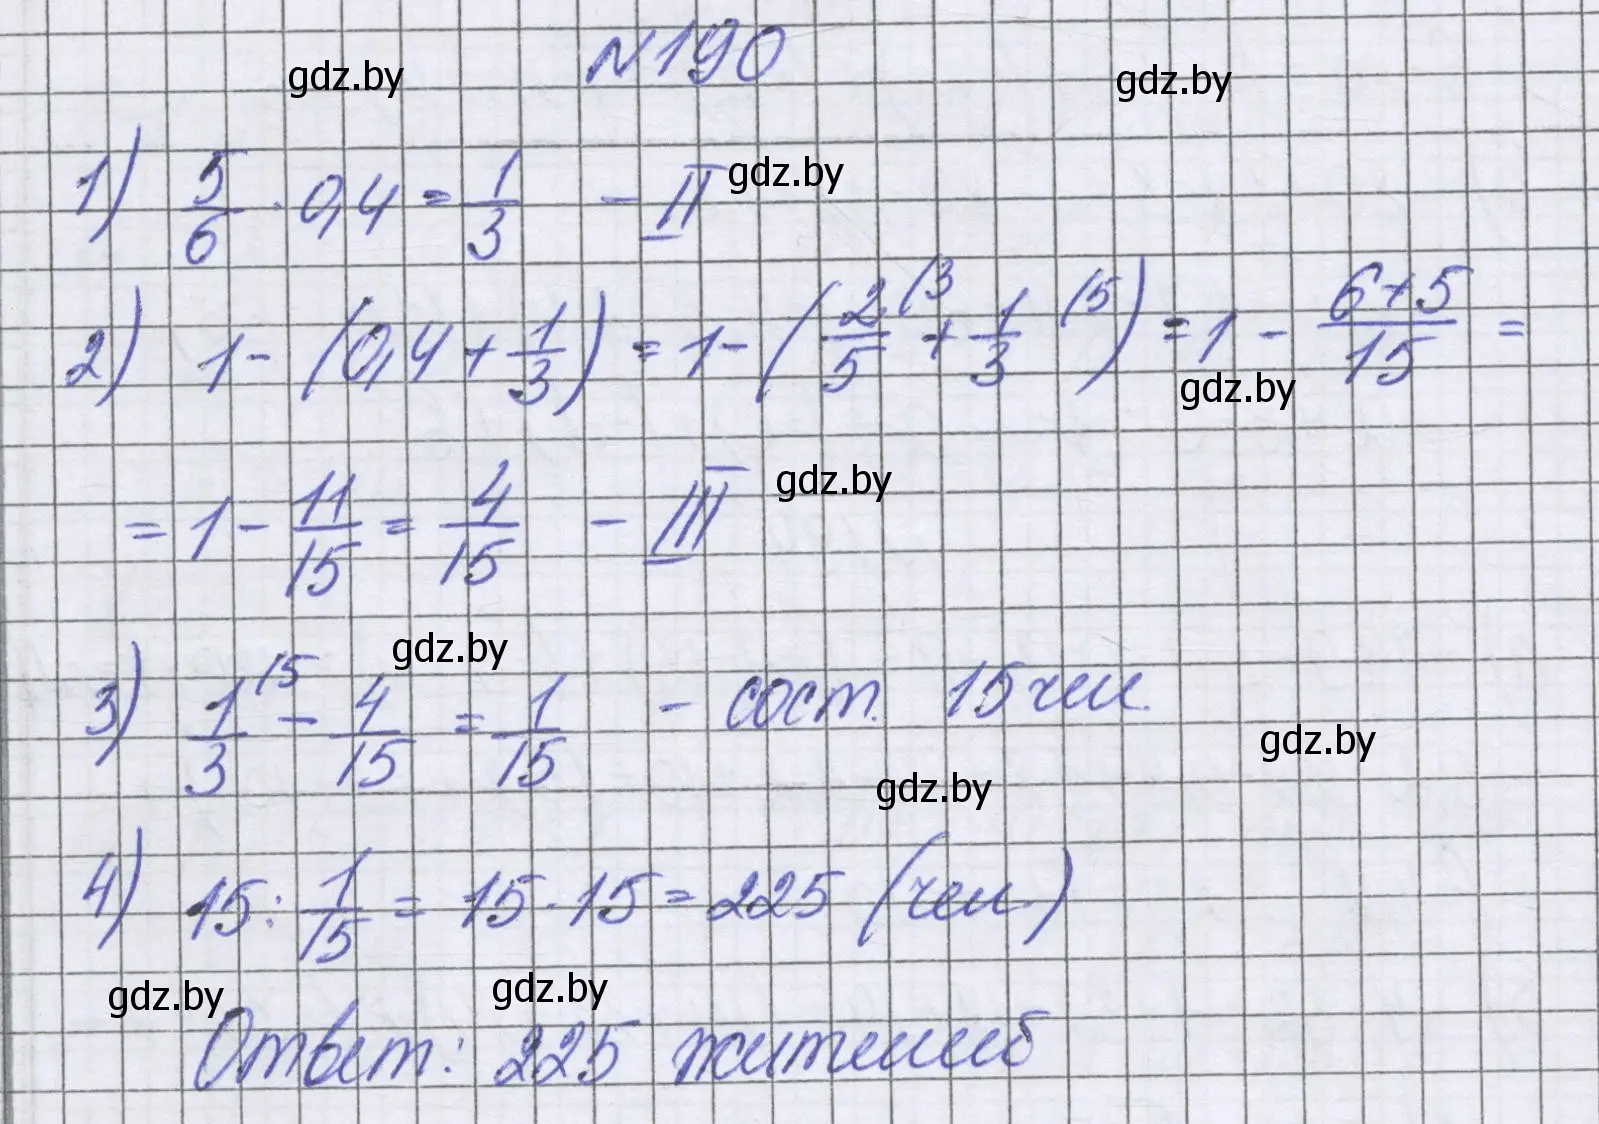 №190
gdz.by
gdz.by
1) 5/6 · 0,4 = 1/3 - II
gdz.by
2) 1 - (0,4 + 1/3) = 1 - (2/5 (3 + 1/3 (5) = 1 - 6+5/15 =
gdz.by
= 1 - 11/15 = 4/15 - III
gdz.by
gdz.by
3) 1/3 (5 - 4/15 = 1/15 - сост. 15 чел.
gdz.by
gdz.by
4) 15 : 1/15 = 15 · 15 = 225 (чел.)
gdz.by
gdz.by
Ответ: 225 жителей